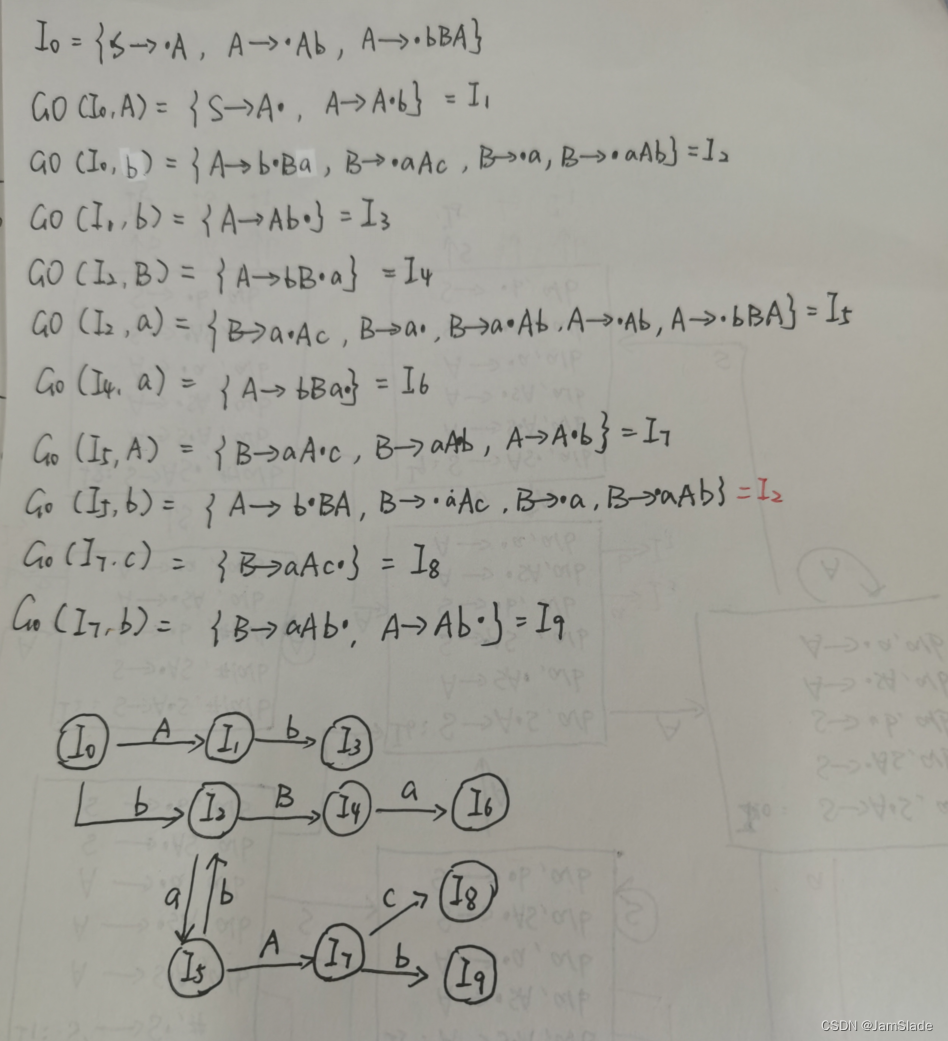 I₀ = {S→·A, A→·Ab, A→·bBA}
GO (I₀, A) = {S→A·, A→A·b} = I₁
GO (I₀, b) = {A→b·Ba, B→·aAc, B→·a, B→·aAb} = I₂
GO (I₁, b) = {A→Ab·} = I₃
GO (I₂, B) = {A→bB·a} = I₄
GO (I₂, a) = {B→a·Ac, B→a·, B→a·Ab, A→·Ab, A→·bBA} = I₅
Go (I₄, a) = {A→bBa·} = I₆
Go (I₅, A) = {B→aA·c, B→aA·b, A→A·b} = I₇
Go (I₅, b) = {A→b·BA, B→·aAc, B→·a, B→·aAb} = I₂
Go (I₇, c) = {B→aAc·} = I₈
Go (I₇, b) = {B→aAb·, A→Ab·} = I₉
I₀ A I₁ b I₃
b I₂ B I₄ a I₆
a b c I₈
I₅ A I₇ b I₉
CSDN @JamSlade